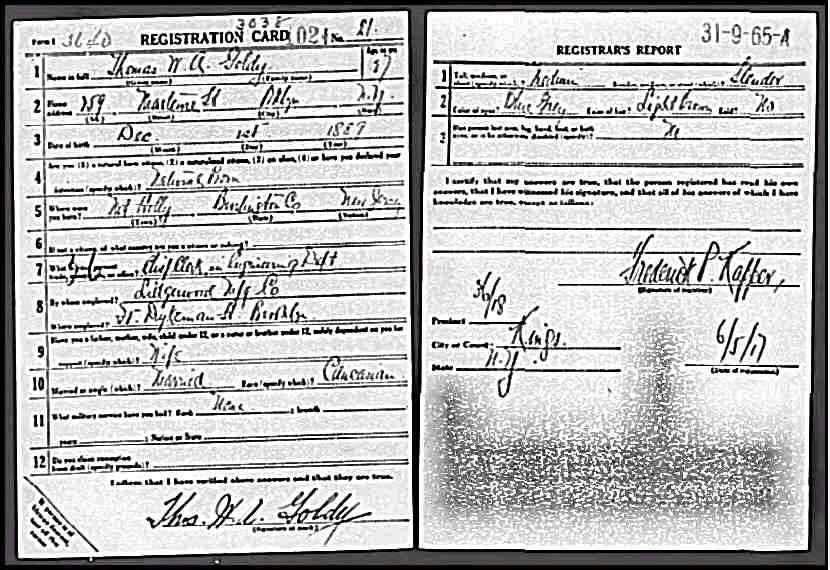 3038
Form 1 3640 REGISTRATION CARD 1024 No. 21
1 Name in full Thomas W. A. Goldy Age in yrs 27
(Given name) (Family name)
2 Home address 259 St Bklyn N.Y.
(No.) (Street) (City) (State)
3 Date of birth Dec 1st 1889
(Month) (Day) (Year)
Are you (1) a natural born citizen, (2) a naturalized citizen, (3) an alien, (4) or have you declared your
4 intention (specify which)? Natural Born
5 Where were you born? Mt Holly Burlington Co New Jersey
(Town) (State) (Nation)
6 If not a citizen, of what country are you a citizen or subject?
7 What or office? Chief Clerk in Engineering Dept
Lidgerwood Mfg Co
8 By whom employed?
Where employed? Ft. Dykeman St. Brooklyn
Have you a father, mother, wife, child under 12, or a sister or brother under 12, solely dependent on you for
9 support (specify which)? Wife
10 Married or single (which)? Married Race (specify which)? Caucasian
11 What military service have you had? Rank None ; branch
years ; Nation or State
12 Do you claim exemption
from draft (specify grounds)?
I affirm that I have verified above answers and that they are true.
Thos. W. A. Goldy
(Signature or mark)
31-9-65-A
REGISTRAR'S REPORT
1 Tall, medium, or short (specify which)? Medium Slender, medium, or stout (which)? Slender
2 Color of eyes? Blue Grey Color of hair? Light Brown Bald? No
3 Has person lost arm, leg, hand, foot, or both
eyes, or is he otherwise disabled (specify)? No
I certify that my answers are true, that the person registered has read his own
answers, that I have witnessed his signature, and that all of his answers of which I have
knowledge are true, except as follows:
Frederick P. Kaffer,
(Signature of registrar)
Precinct 36/18
City or County Kings.
State N.Y. 6/5/17
(Date of registration)